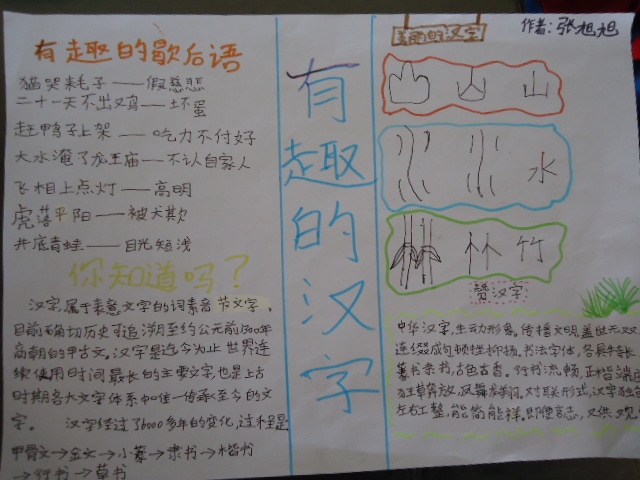 有趣的歇后语
猫哭耗子——假慈悲
二十一天不出鸡——坏蛋
赶鸭子上架——吃力不付好
大水淹了龙王庙——不认自家人
飞机上点灯——高明
虎落平阳——被犬欺
井底青蛙——目光短浅
你知道吗？
汉字,属于表意文字的词素音节文字,
目前确切历史可追溯至约公元前1300年
商朝的甲古文。汉字是迄今为止世界连
续使用时间最长的主要文字,也是上古
时期各大文字体系中唯一传承至今的文
字。 汉字经过了6000多年的变化,过程是
甲骨文→金文→小篆→隶书→楷书
→行书→草书
有趣的汉字
美丽的汉字
作者:张旭旭
山
水
竹
赞汉字
中华汉字,生动形象,传播文明,盖世无双
连缀成句,顿挫抑扬,书法字体,各具特长
篆书隶书,古色古香。行书流畅,正楷端庄
狂草奔放,凤舞龙翔。对联形式,汉字独
左右工整,能简能详。即便言志,又供